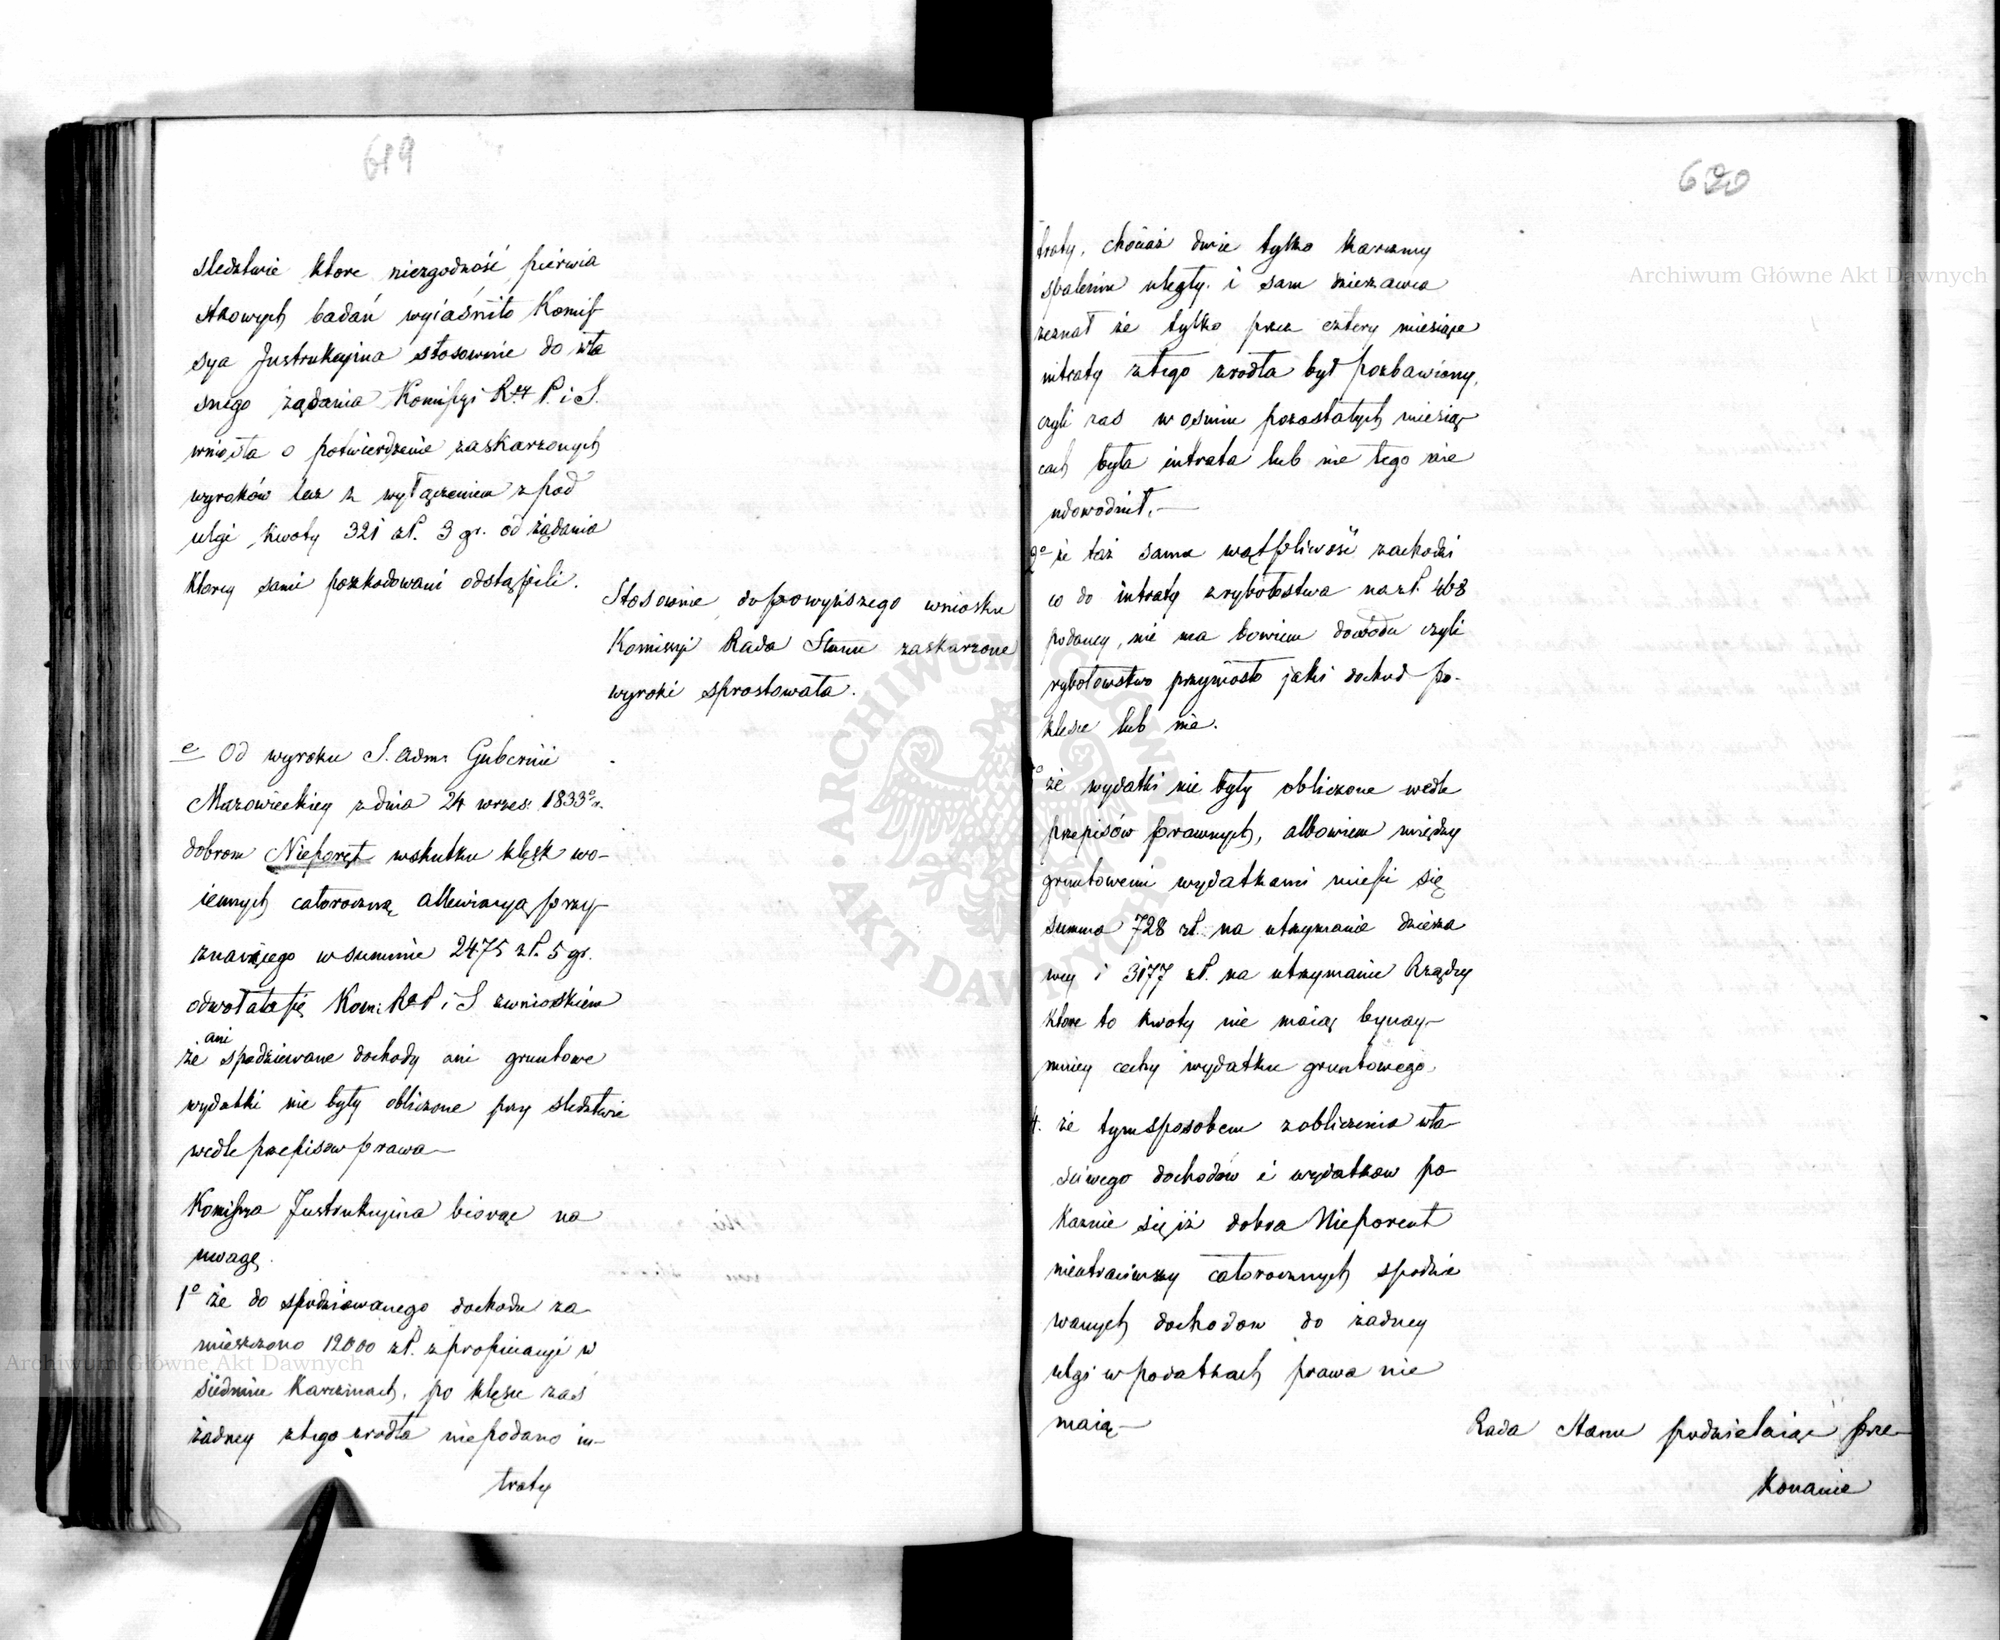 619
sledztwie ktore niezgodność pierwia
stkowych badań wyiaśniło Komis
sya Instrukcyina stosownie do wła
snego żądania Komissyi R. P. i S.
wniosła o potwierdzenie zaskarzonych
wyroków lecz z wyłączeniem z pod
ulgi kwoty 321 zł. 3 gr. od żądania
ktorey sami poszkodowani odstąpili.
Stosownie do powyższego wniosku
Komissyi Rada Stanu zaskarzone
wyroki sprostowała.
e Od wyroku S. Adm. Gubernii
Mazowieckiey z dnia 24 wrzes: 1833 r.
dobrom Nieporęt wskutku klęsk wo-
iennych całoroczną allewiacyą przy-
znaiącego w summie 2475 zł. 5 gr.
odwołała się Kom: R. P i S z wnioskiem
ani
że spodziewane dochody ani gruntowe
wydatki nie były obliczone przy sledztwie
wedle przepisow prawa—
Komissya Instrukcyina biorąc na
uwagę.
1o że do spodziewanego dochodu za-
mieszczono 12000 zł. z propinacyi w
siedmiu karczmach, po klęsce zaś
żadney z tego zrodła nie podano in-
traty
620
traty, chociaż dwie tylko karczmy
spaleniu uległy. i sam dzierzawca
zeznał że tylko przez cztery miesiące
intraty z tego zrodła był pozbawiony,
czyli zas w osmiu pozostałych miesią-
cach była intrata lub nie tego nie
udowodnił.—
2o że taż sama wątpliwość zachodzi
co do intraty z rybołostwa na zł. 468
podaney, nie ma bowiem dowodu czyli
rybołowstwo przyniosło jaki dochod po-
klesce lub nie.
że wydatki nie były obliczone wedle
przepisów prawnych, albowiem między
gruntowemi wydatkami mieści się
summa 728 zł. na utrzymanie dzierza
wcy i 3177 zł. na utrzymanie Rządcy
ktore to kwoty nie maią bynay-
mniey cechy wydatku gruntowego.
4. że tym sposobem z obliczenia wła-
sciwego dochodow i wydatkow po-
kaznie się iż dobra Nieporent
nieutraciwszy całorocznych spodzie
wanych dochodow do żadney
ulgi w podatkach prawa nie
maią—
Rada Stanu podzielaiąc prze-
konanie
Archiwum Główne Akt Dawnych
Archiwum Główne Akt Dawnych
ARCHIWUM GŁÓWNE AKT DAWNYCH